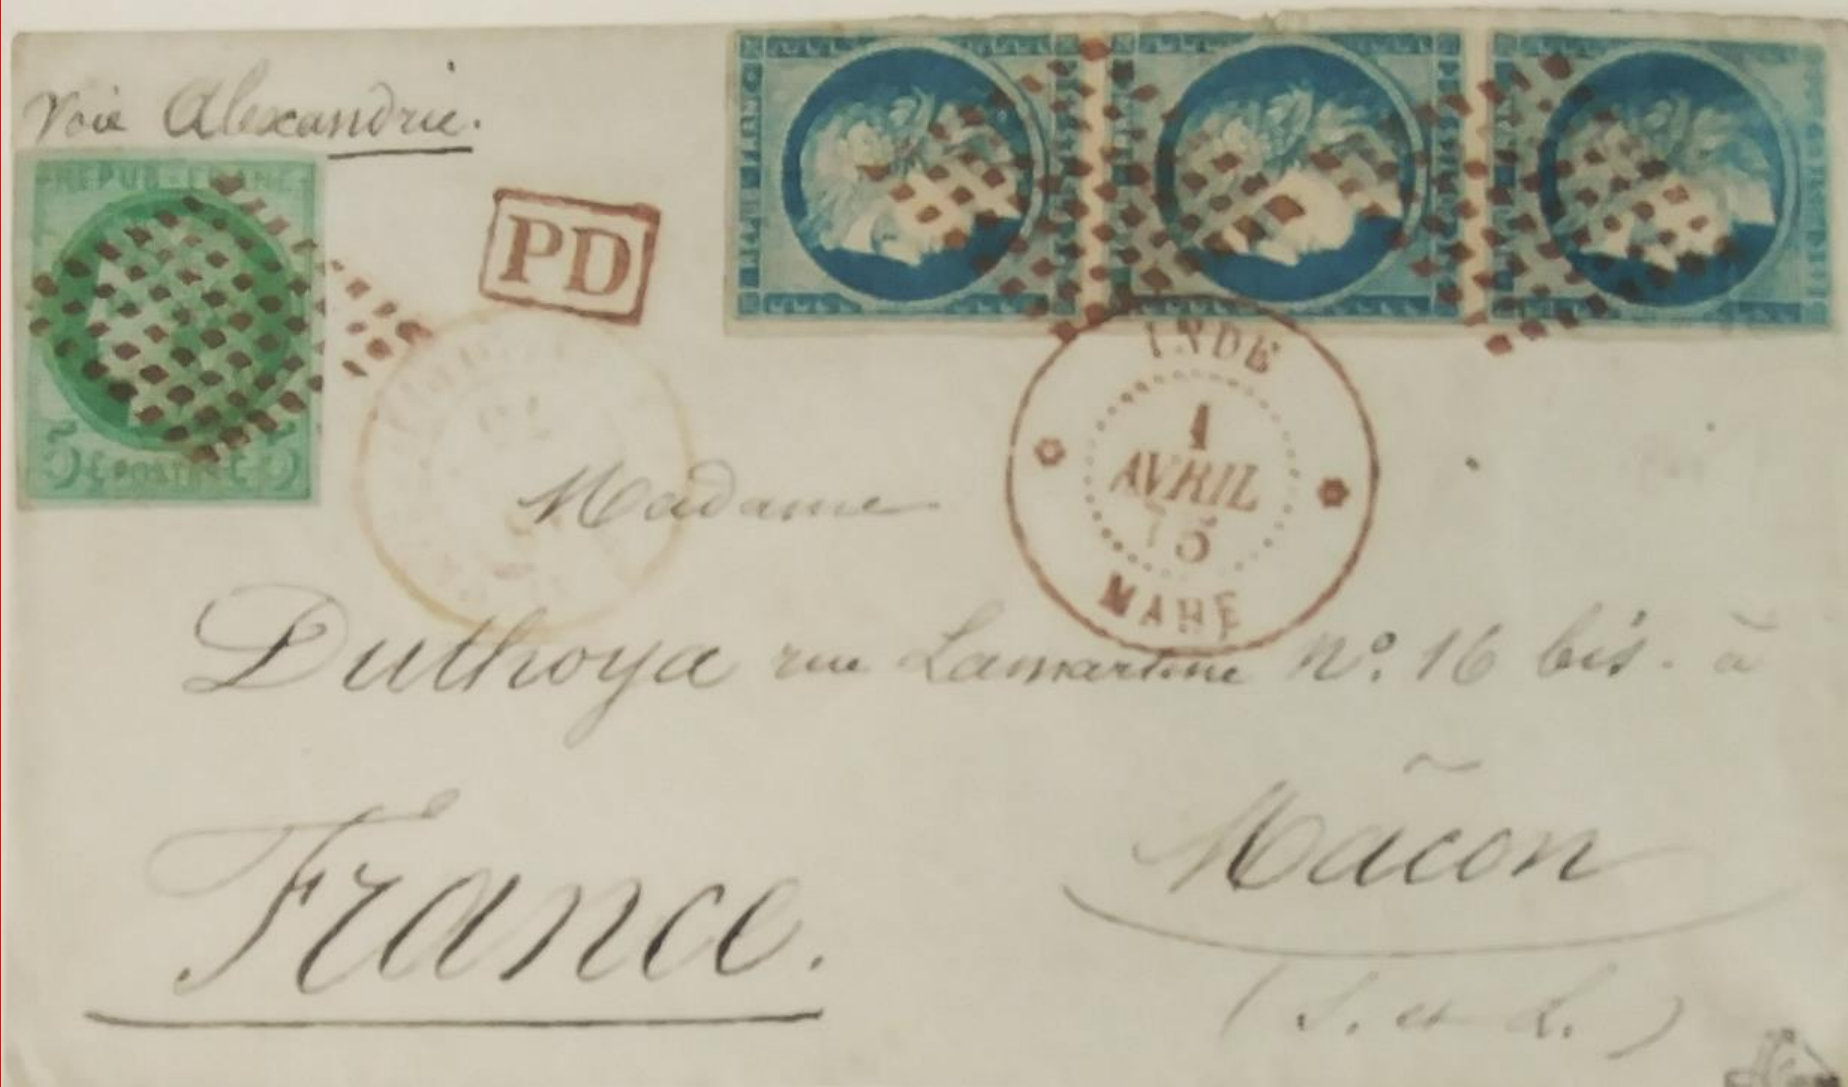 Voie Alexandrie.
REPUB FRANC
5 C POSTES C 5
PD
INDE
1
AVRIL
75
MAHE
Madame
Duthoya rue Lamartine N°. 16 bis. à
Mâcon
France.
(S. et L.)